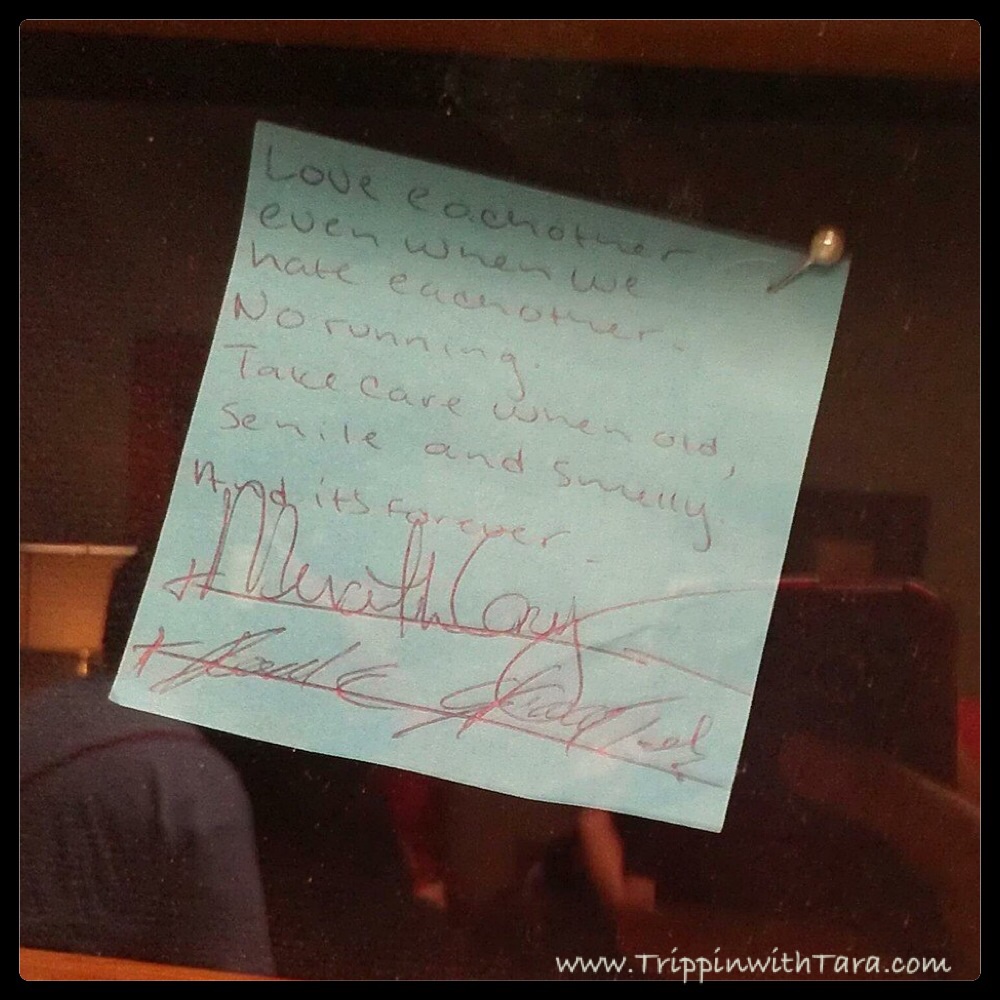 Love eachother
even when we
hate eachother.
No running.
Take care when old,
senile and smelly.
And its forever.
Meredith Grey
www.TrippinwithTara.com